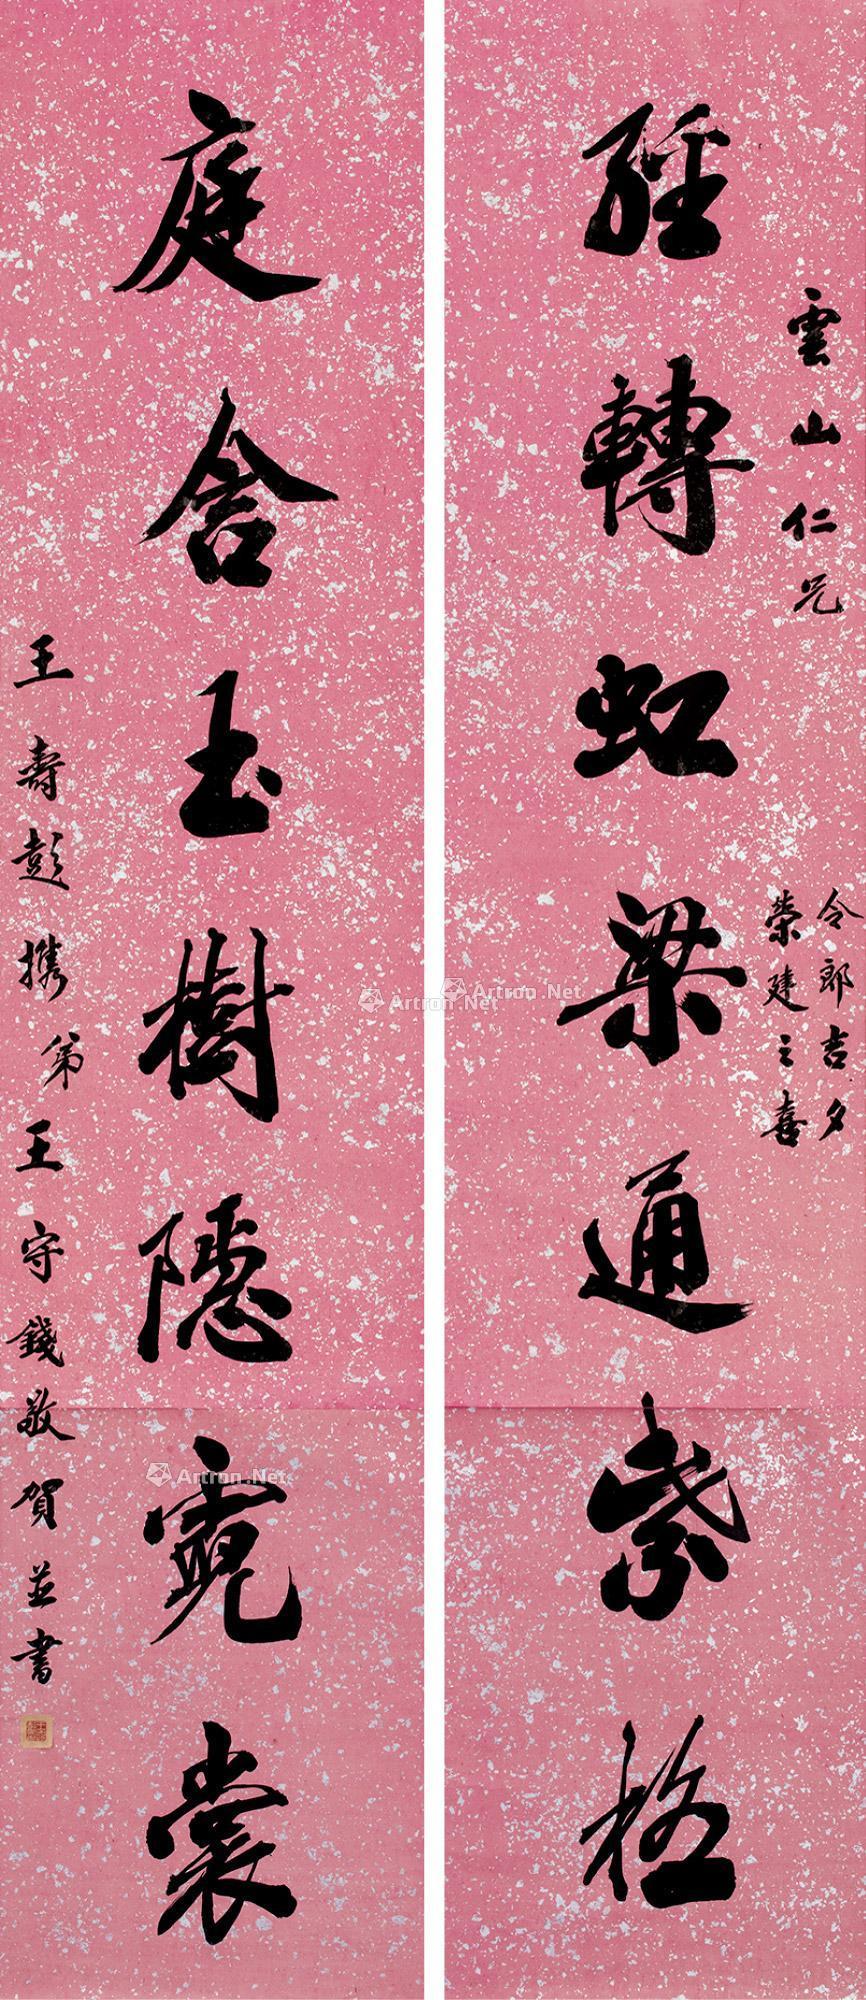 雲山仁兄
令郎吉夕
榮建之喜
經轉虹梁通紫極
庭含玉樹隱霓裳
王壽彭携弟王守錢敬賀並書
Artron.Net
Artron.Net
Artron.Net